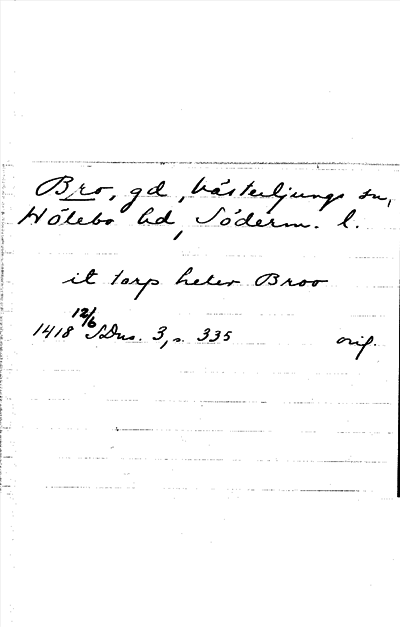 Bro, gd, Västerljungs sn,
Hölebo hd, Söderm. l.
it torp heter Broo
1418 12/6 SDns. 3, s. 335 orig.